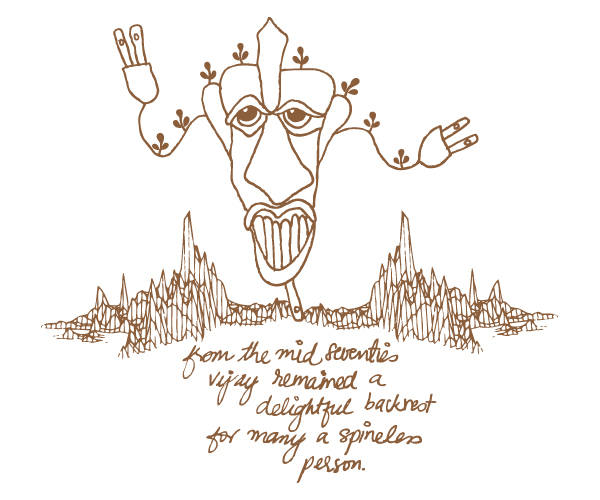 from the mid seventies
vijay remained a
delightful backrest
for many a spineless
person.